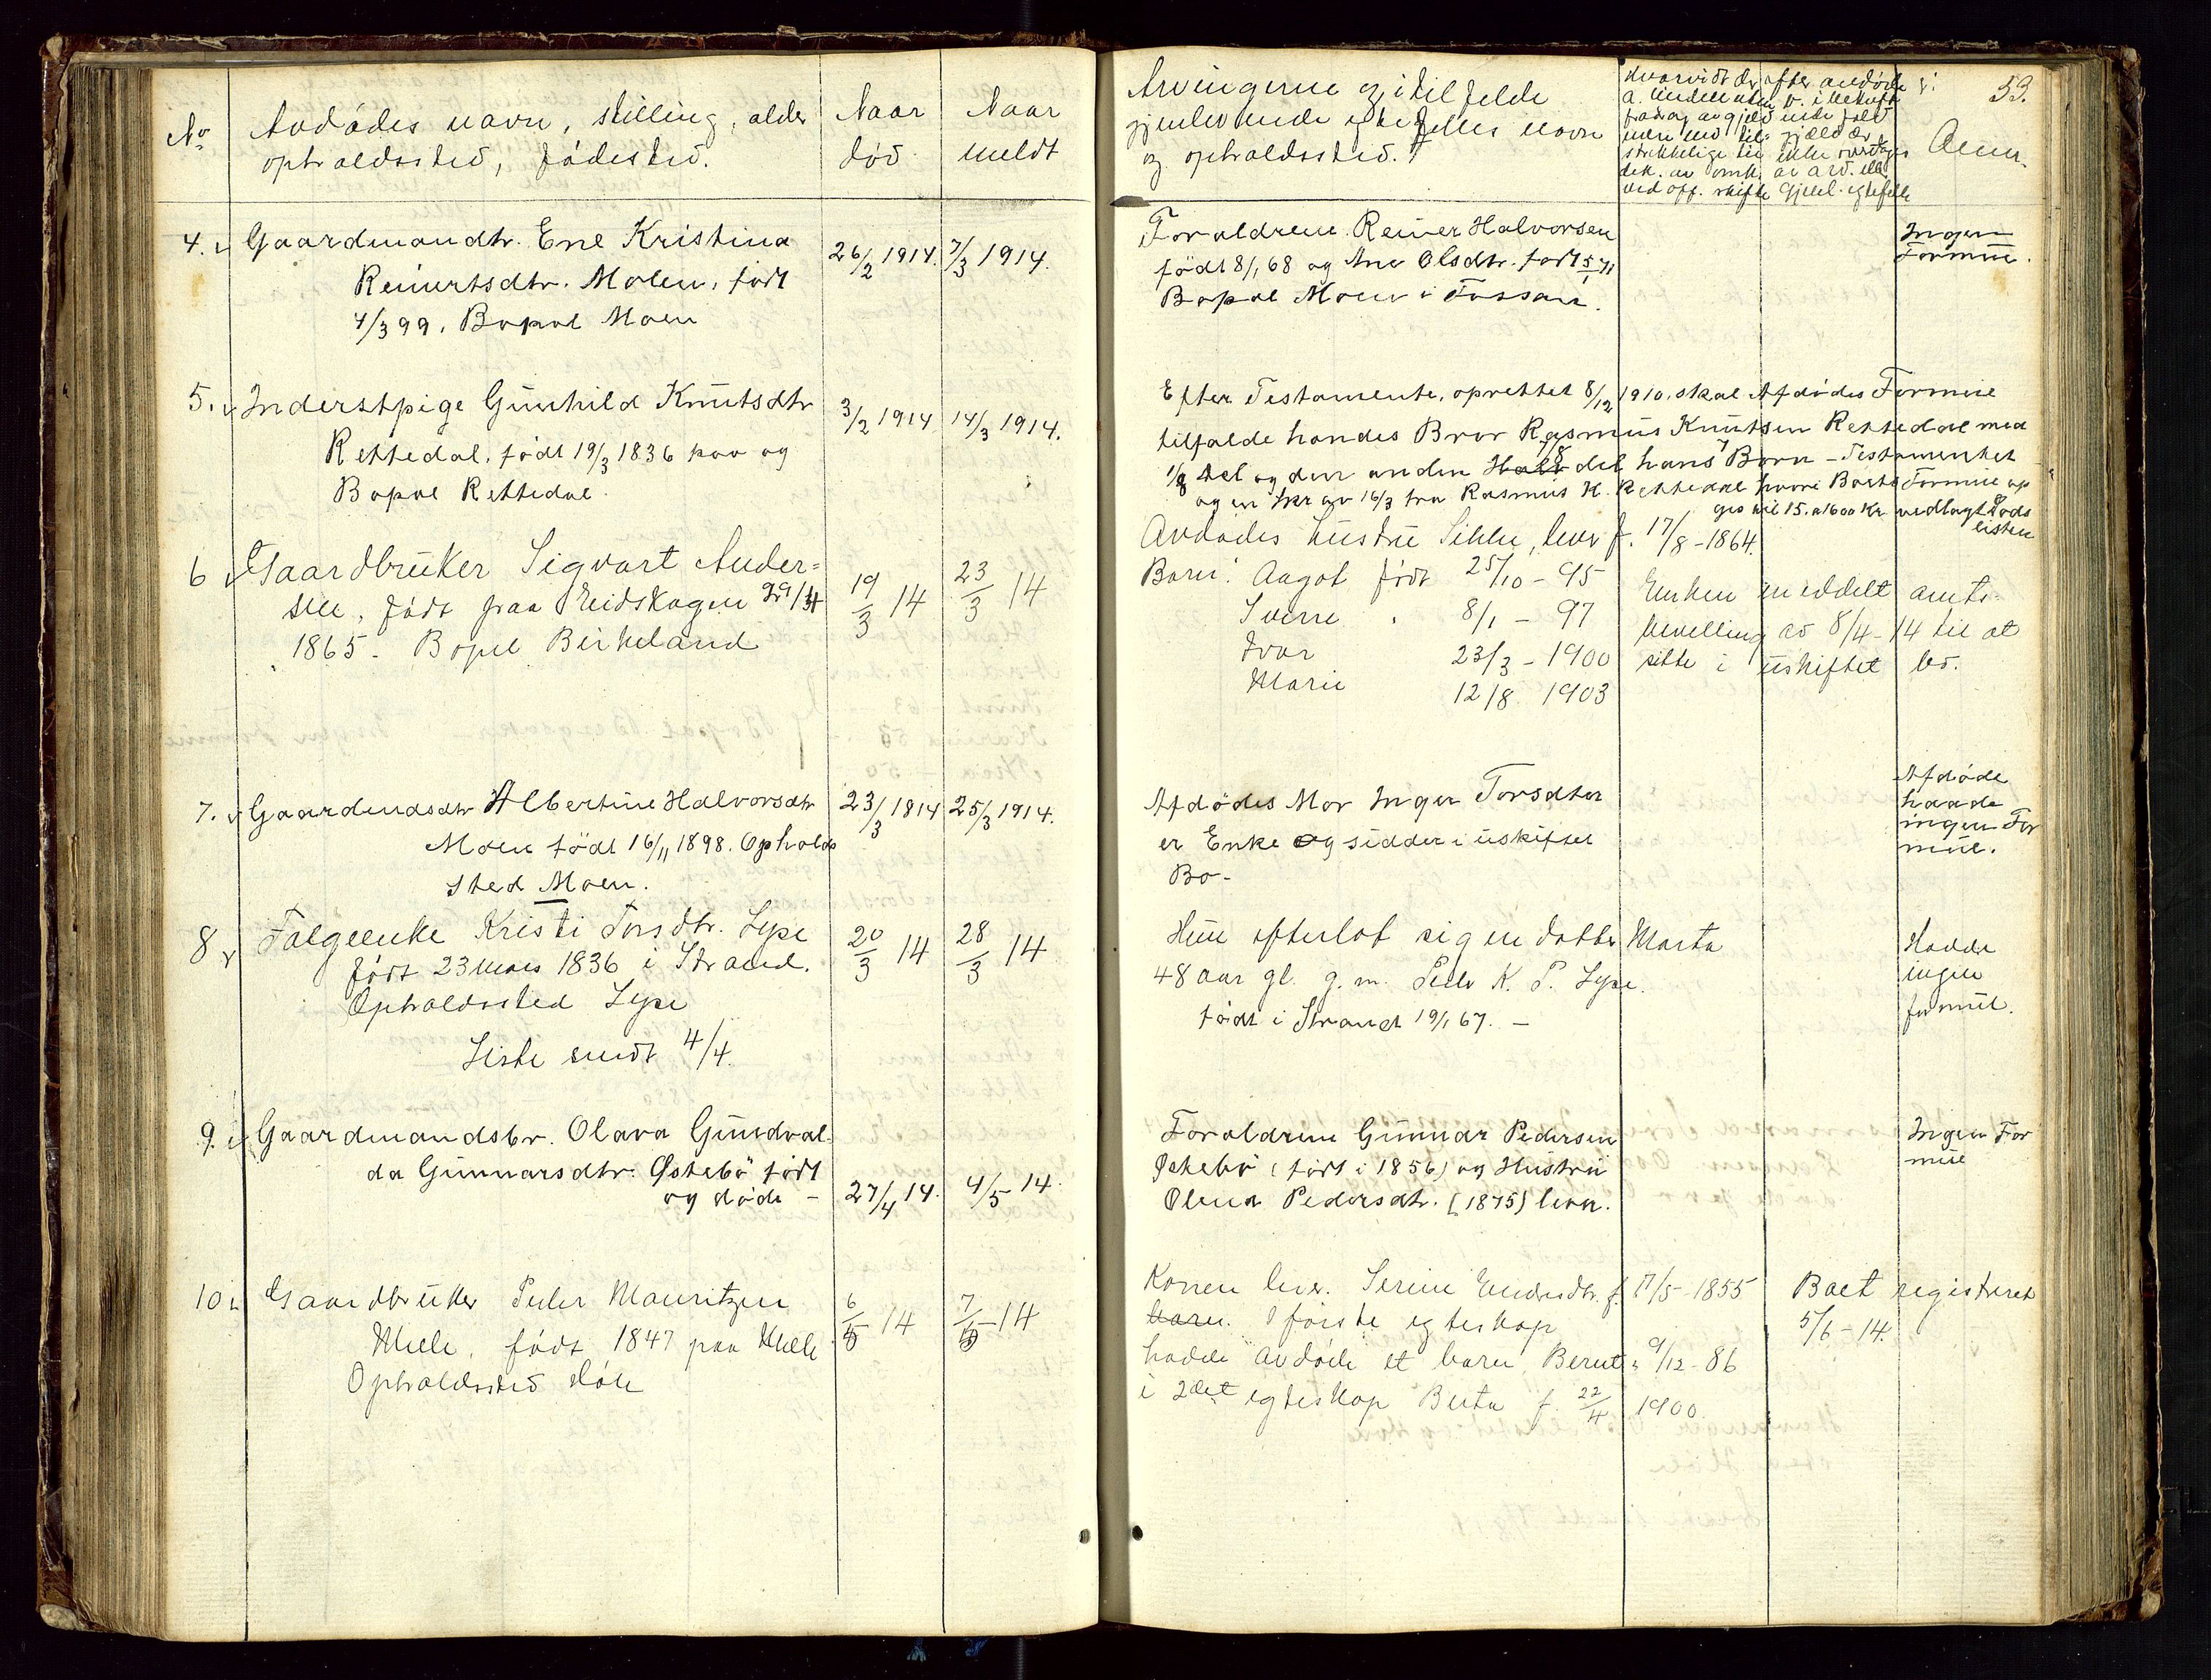 No
Avdødes navn, stilling, alder
opholdssted, fødested.
Naar
død
Naar
meldt
4. Gaardmandtr. Ene Kristina
Reinertsdtr. Moen, født
4/3 99. Bopæl Moen
26/2 1914. 7/3 1914.
5. Inderstpige Gunhild Knutsdtr
Rettedal, født 19/3 1836 paa og
Bopæl Rettedal.
3/2 1914 14/3 1914.
6 Gaardbruker Sigvart Ander=
sen, født paa Eidskogen 29/4
1865. Bopæl Birkeland
19/3 14 23/3 14
7. Gaardmdsdtr Albertine Halvorsdtr
Moen født 16/11 1898. Opholds
sted Moen.
23/3 1814 25/3 1914.
8 Følgeenke Kristi Torsdtr. Lype
født 23 mars 1836 i Strand.
Opholdssted Lype
Liste sendt 4/4.
20/3 14 28/3 14
9. Gaardmandsbr. Olava Gundval-
da Gunnarsdtr. Østebø født
og døde -
27/4 14. 4/5 14.
10 Gaardbruker Peder Mauritzen
Helle, født 1847 paa Helle
Opholdssted Høle
6/5 14 7/5 14
53.
Arvingerne og i tilfelde
gjenlevende egtefelles navn
og opholdssted.
Anm.
Forældrene Reiner Halvorsen
født 8/1 68 og Ane Olsdtr. født 5/1 71
Bopæl Moen i Fossan.
Ingen
Formue.
Efter Testamente, oprettet 8/12 1910, skal Afdødes Formue
tilfalde hendes Bror Rasmus Knutsen Rettedal med
1/8 del og den anden Halv 7/8 del hans 7 Børn - Testamentet
og en skr av 16/3 fra Rasmus K. Rettedal hvori Boets Formue op
ges til 15 a 1600 Kr vedlagt Døds
listen
Avdødes hustru Sikke, lever f. 17/8 - 1864.
Barn: Aagot født 25/10 - 95
Sverre 8/1 - 97
Ivar 23/3 - 1900
Marie 12/8 1903
Enken meddelt amts-
bevilling av 8/4-14 til at
sitte i uskiftet bo.
Afdødes Mor Inger Torsdter
er Enke og sidder i uskiftet
Bo-
Afdøde
havde
ingen For
mue.
Hun efterlot sig en datter Marta
48 aar gl. g.m. Peder K. P. Lype.
født i Strand 19/1 67. -
Hadde
ingen
formue.
Forældrene Gunnar Pedersen
Østebø (født i 1856) og Hustru
Olena Pedersdtr. (1875) lever.
Ingen For
mue
Konen lever. Serine Endresdtr. f. 17/5 - 1855
barn. I første egteskap
hadde avdøde et barn, Bernt, 9/12 - 86
i 2det egteskap Berta f. 22/4 1900.
Boet registreret
5/6 - 14.